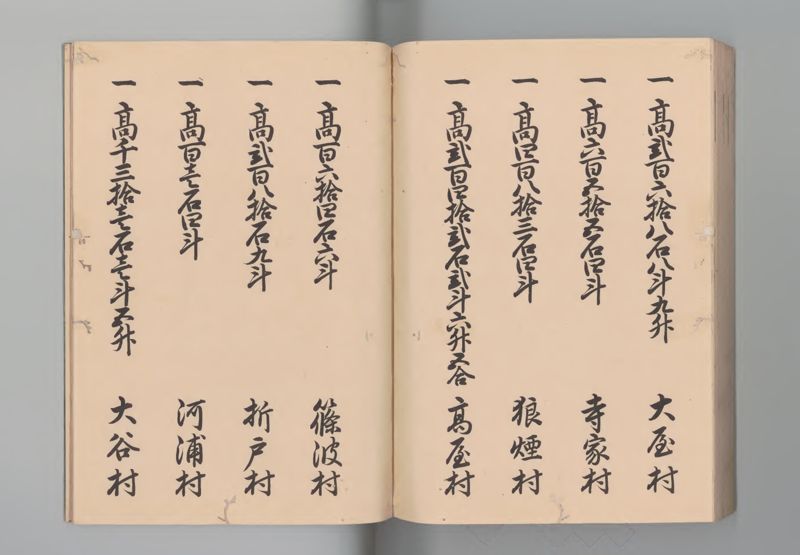 一 高弐百六拾八石八斗九升 大屋村
一 高六百五拾五石四斗 寺家村
一 高四百八拾三石四斗 狼煙村
一 高弐百四拾弐石弐斗六升五合 高屋村
一 高百六拾四石六斗 篠波村
一 高弐百八拾石九斗 折戸村
一 高百壱石四斗 河浦村
一 高千三拾壱石壱斗五升 大谷村